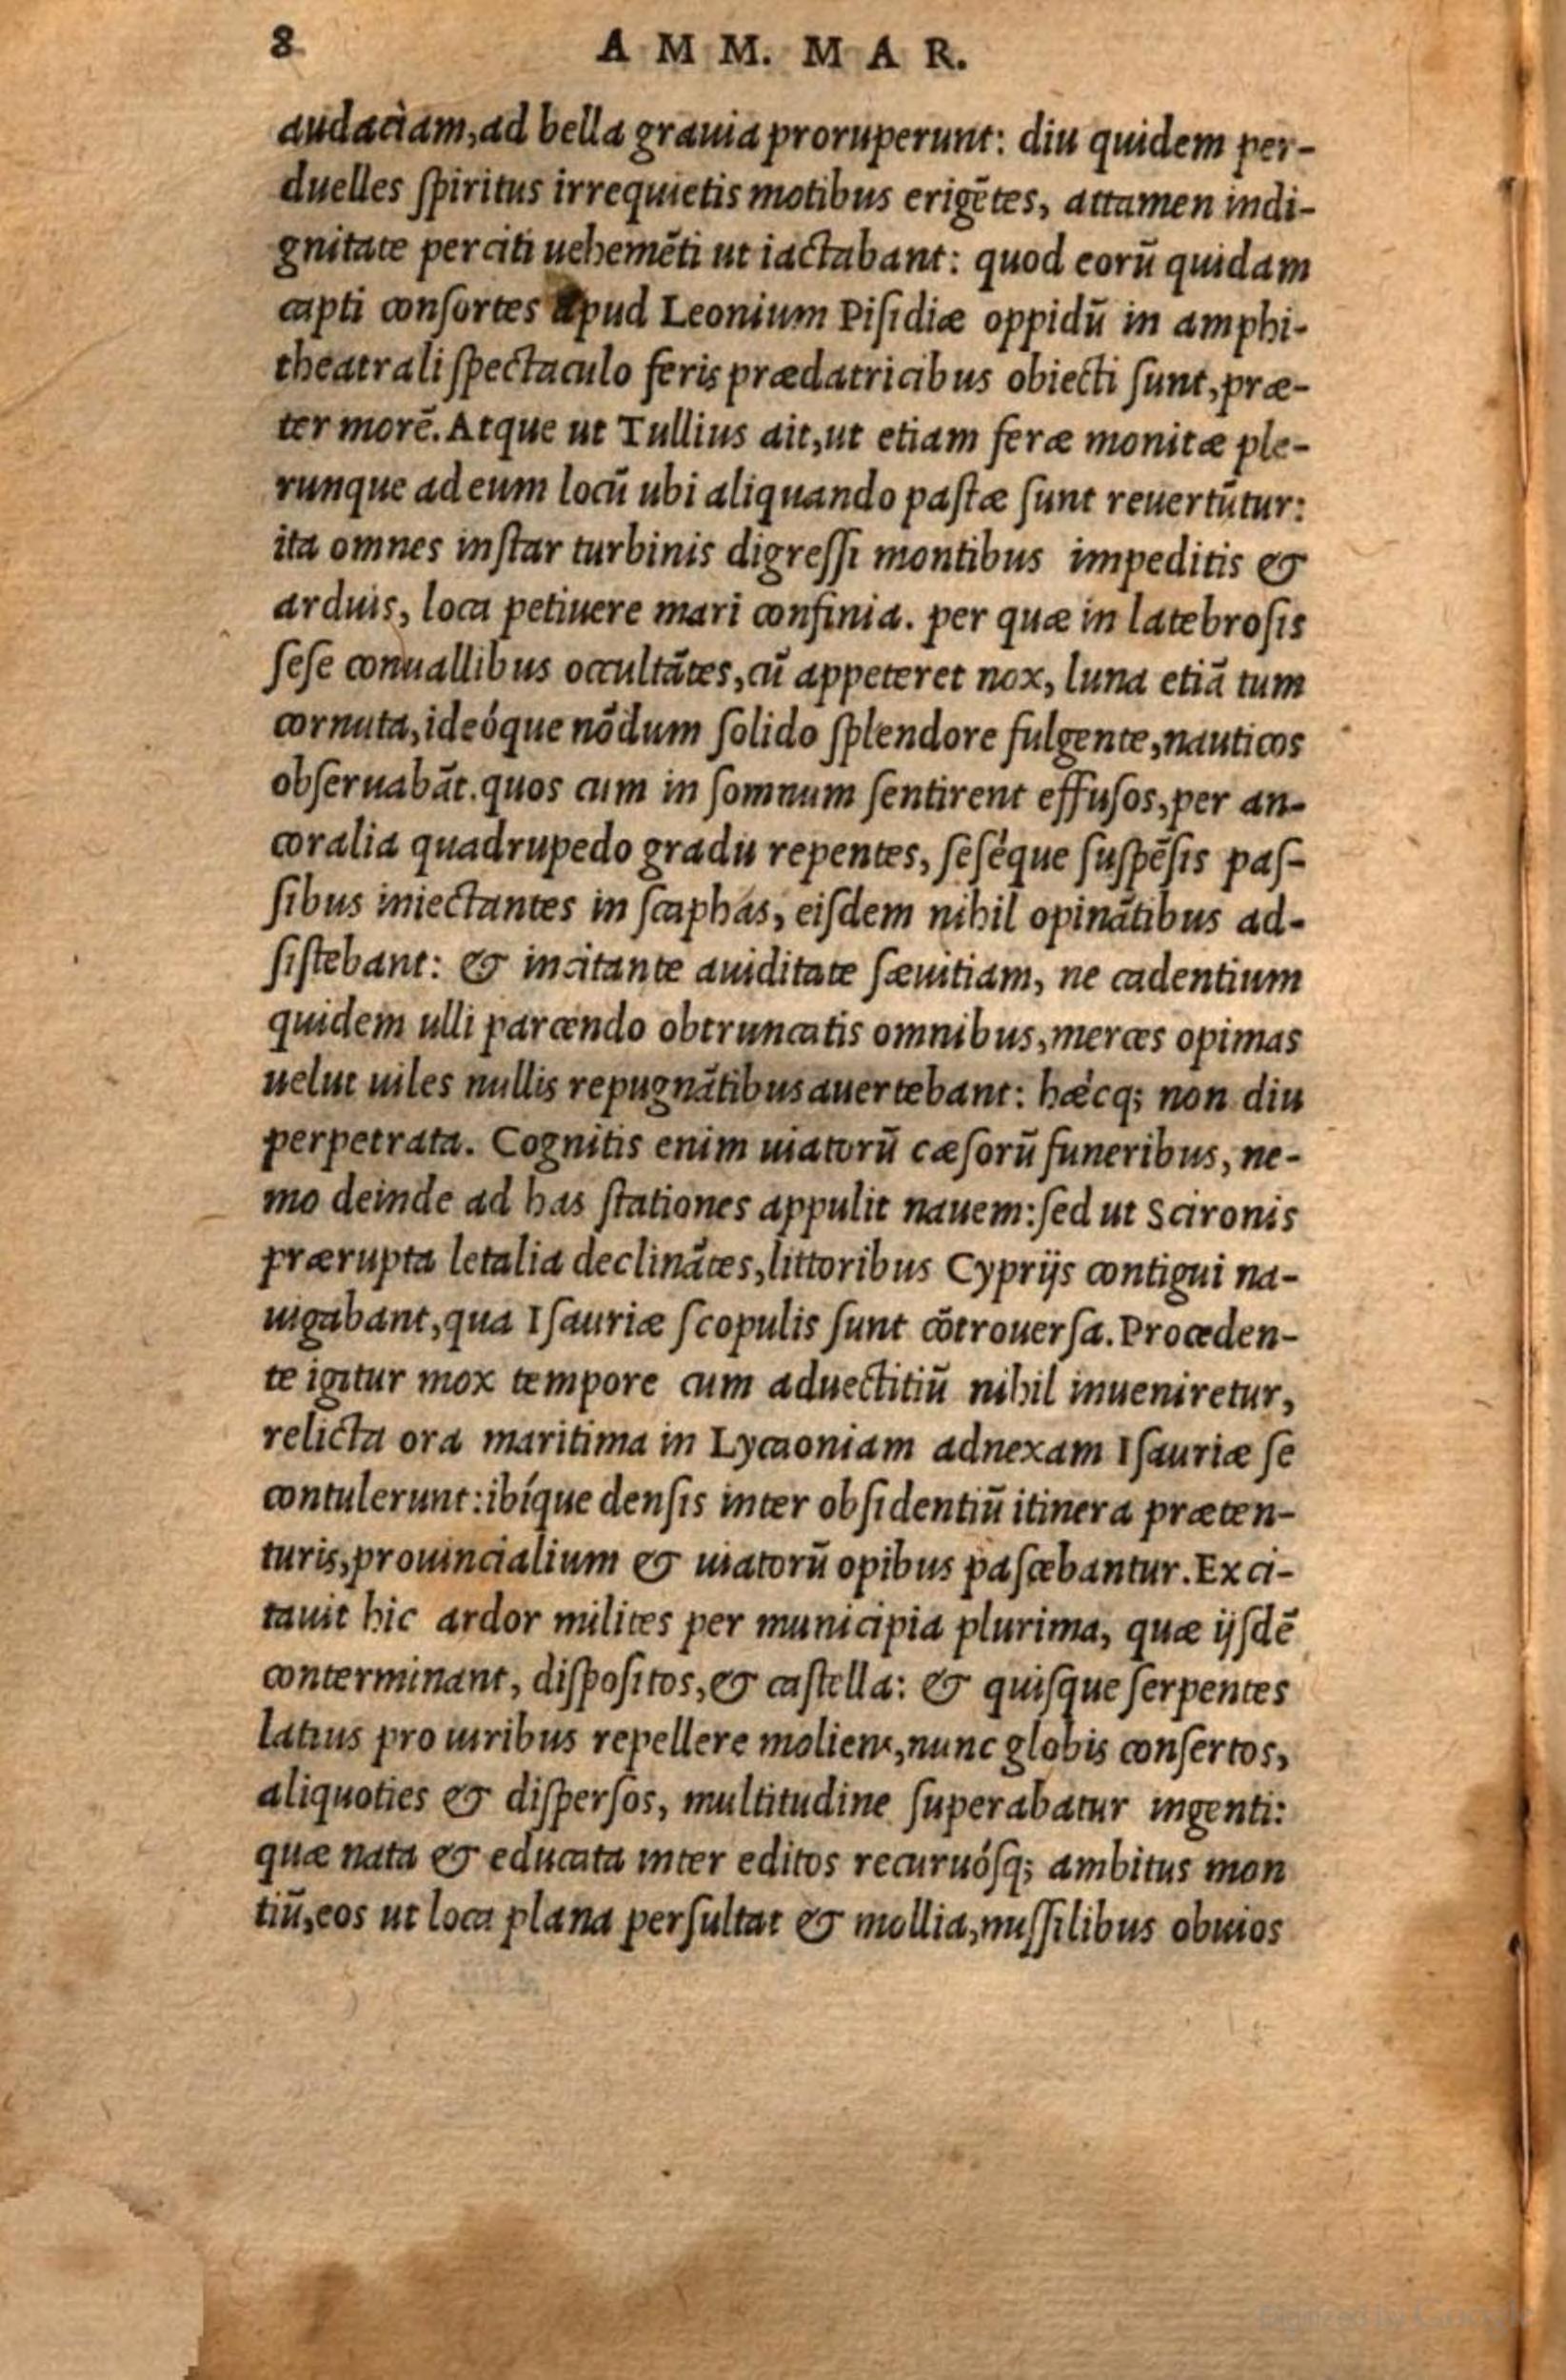 8 AMM. MAR.
audaciam, ad bella grauia proruperunt: diu quidem per-
duelles ſpiritus irrequietis motibus erigẽtes, attamen indi-
gnitate perciti uehemẽti ut iactabant: quod eorũ quidam
capti conſortes apud Leonium Piſidiæ oppidũ in amphi-
theatrali ſpectaculo feris prædatricibus obiecti ſunt, præ-
ter morẽ. Atque ut Tullius ait, ut etiam feræ monitæ ple-
runque ad eum locũ ubi aliquando paſtæ ſunt reuertũtur:
ita omnes inſtar turbinis digreſſi montibus impeditis &
arduis, loca petiuere mari confinia. per quæ in latebroſis
ſeſe conuallibus occultãtes, cũ appeteret nox, luna etiã tum
cornuta, ideóque nõdum ſolido ſplendore fulgente, nauticos
obſeruabãt. quos cum in ſomnum ſentirent effuſos, per an-
coralia quadrupedo gradu repentes, ſeſéque ſuſpẽſis paſ-
ſibus iniectantes in ſcaphas, eiſdem nihil opinãtibus ad-
ſiſtebant: & incitante auiditate ſæuitiam, ne cadentium
quidem ulli parcendo obtruncatis omnibus, merces opimas
uelut uiles nullis repugnãtibus auertebant: hǽcq; non diu
perpetrata. Cognitis enim uiatorũ cæſorũ funeribus, ne-
mo deinde ad has ſtationes appulit nauem: ſed ut Scironis
prærupta letalia declinãtes, littoribus Cyprijs contigui na-
uigabant, qua Iſauriæ ſcopulis ſunt cõtrouerſa. Proceden-
te igitur mox tempore cum aduectitiũ nihil inueniretur,
relicta ora maritima in Lycaoniam adnexam Iſauriæ ſe
contulerunt: ibíque denſis inter obſidentiũ itinera præten-
turis, prouincialium & uiatorũ opibus paſcebantur. Exci-
tauit hic ardor milites per municipia plurima, quæ ijſdẽ
conterminant, diſpoſitos, & caſtella: & quiſque ſerpentes
latius pro uiribus repellere moliens, nunc globis confertos,
aliquoties & diſperſos, multitudine ſuperabatur ingenti:
quæ nata & educata inter editos recuruóſq; ambitus mon
tiũ, eos ut loca plana perſultat & mollia, miſſilibus obuios